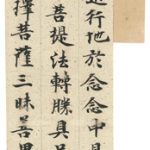 進行地於念念中具
菩提法轉勝具足
擇菩薩三昧善思